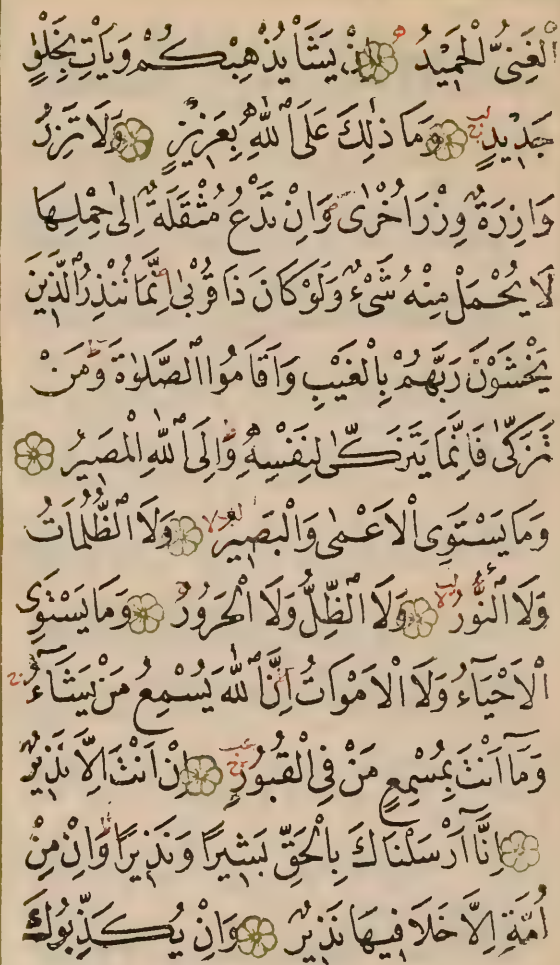 الْغَنِىُّ الْحَمِيدُ اِنْ يَشَأْ يُذْهِبْكُمْ وَيَأْتِ بِخَلْقٍ
جَدِيدٍ وَمَا ذٰلِكَ عَلَى اللّٰهِ بِعَزِيزٍ وَلَا تَزِرُ
وَازِرَةٌ وِزْرَ اُخْرٰى وَاِنْ تَدْعُ مُثْقَلَةٌ اِلٰى حِمْلِهَا
لَا يُحْمَلْ مِنْهُ شَىْءٌ وَلَوْ كَانَ ذَا قُرْبٰى اِنَّمَا تُنْذِرُ الَّذِينَ
يَخْشَوْنَ رَبَّهُمْ بِالْغَيْبِ وَاَقَامُوا الصَّلٰوةَ وَمَنْ
تَزَكّٰى فَاِنَّمَا يَتَزَكّٰى لِنَفْسِهِ وَاِلَى اللّٰهِ الْمَصِيرُ
وَمَا يَسْتَوِى الْاَعْمٰى وَالْبَصِيرُ وَلَا الظُّلُمَاتُ
وَلَا النُّورُ وَلَا الظِّلُّ وَلَا الْحَرُورُ وَمَا يَسْتَوِى
الْاَحْيَاءُ وَلَا الْاَمْوَاتُ اِنَّ اللّٰهَ يُسْمِعُ مَنْ يَشَاءُ
وَمَا اَنْتَ بِمُسْمِعٍ مَنْ فِى الْقُبُورِ اِنْ اَنْتَ اِلَّا نَذِيرٌ
اِنَّا اَرْسَلْنَاكَ بِالْحَقِّ بَشِيرًا وَنَذِيرًا وَاِنْ مِنْ
اُمَّةٍ اِلَّا خَلَا فِيهَا نَذِيرٌ وَاِنْ يُكَذِّبُوكَ